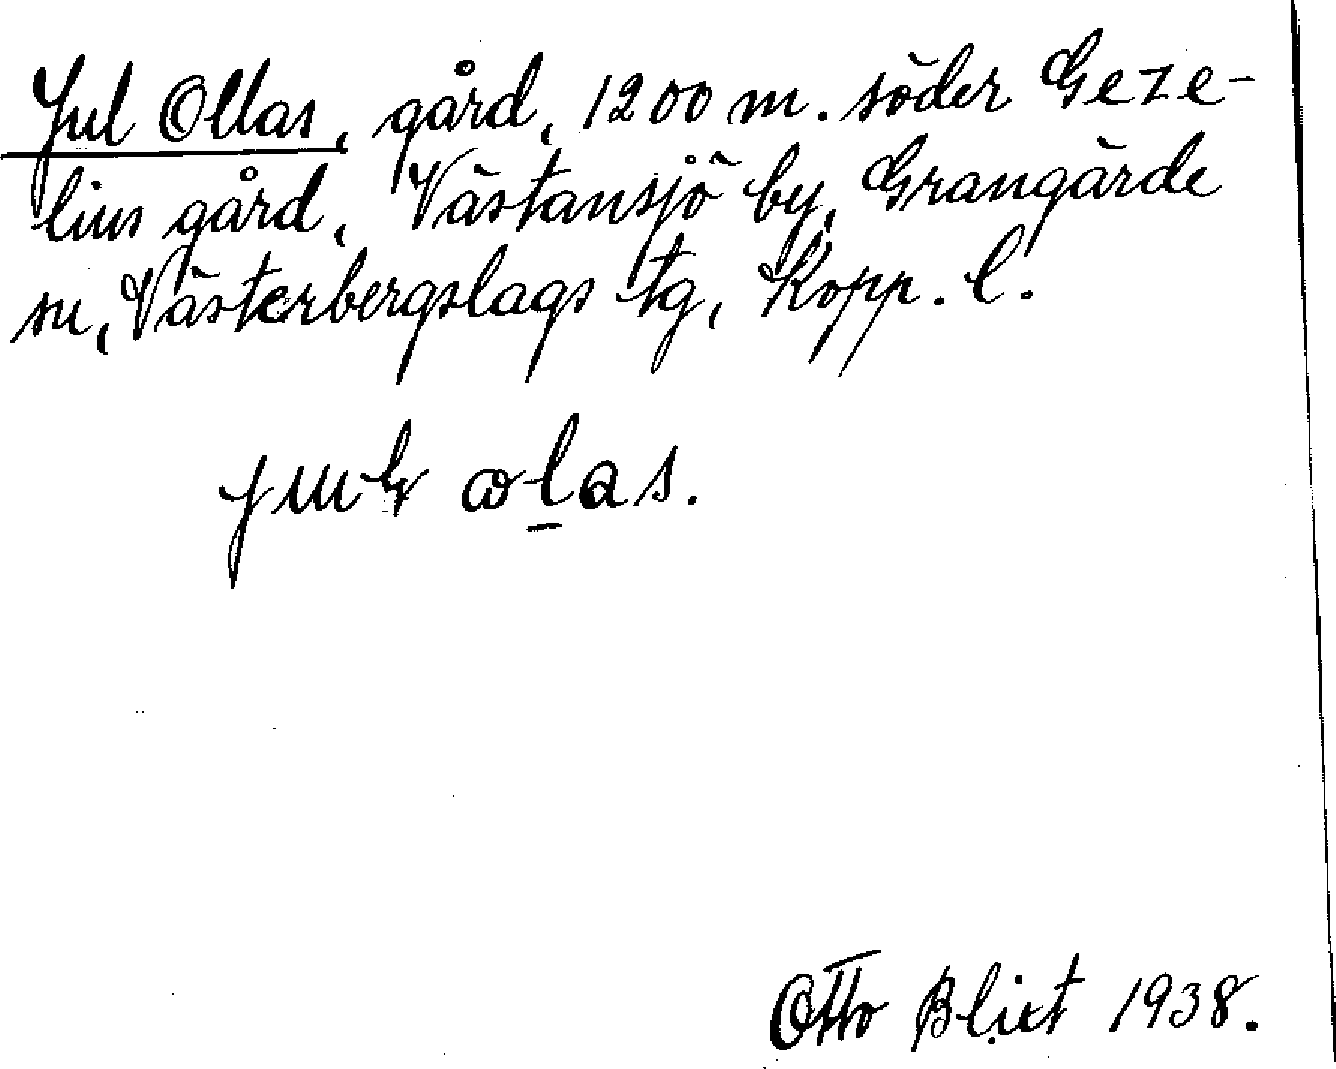 Jul Ollas, gård, 1200 m. söder Geze-
lius gård, Västansjö by, Grangärde
sn, Västerbergslags tg, Kopp. l.
Otto Blixt 1938.